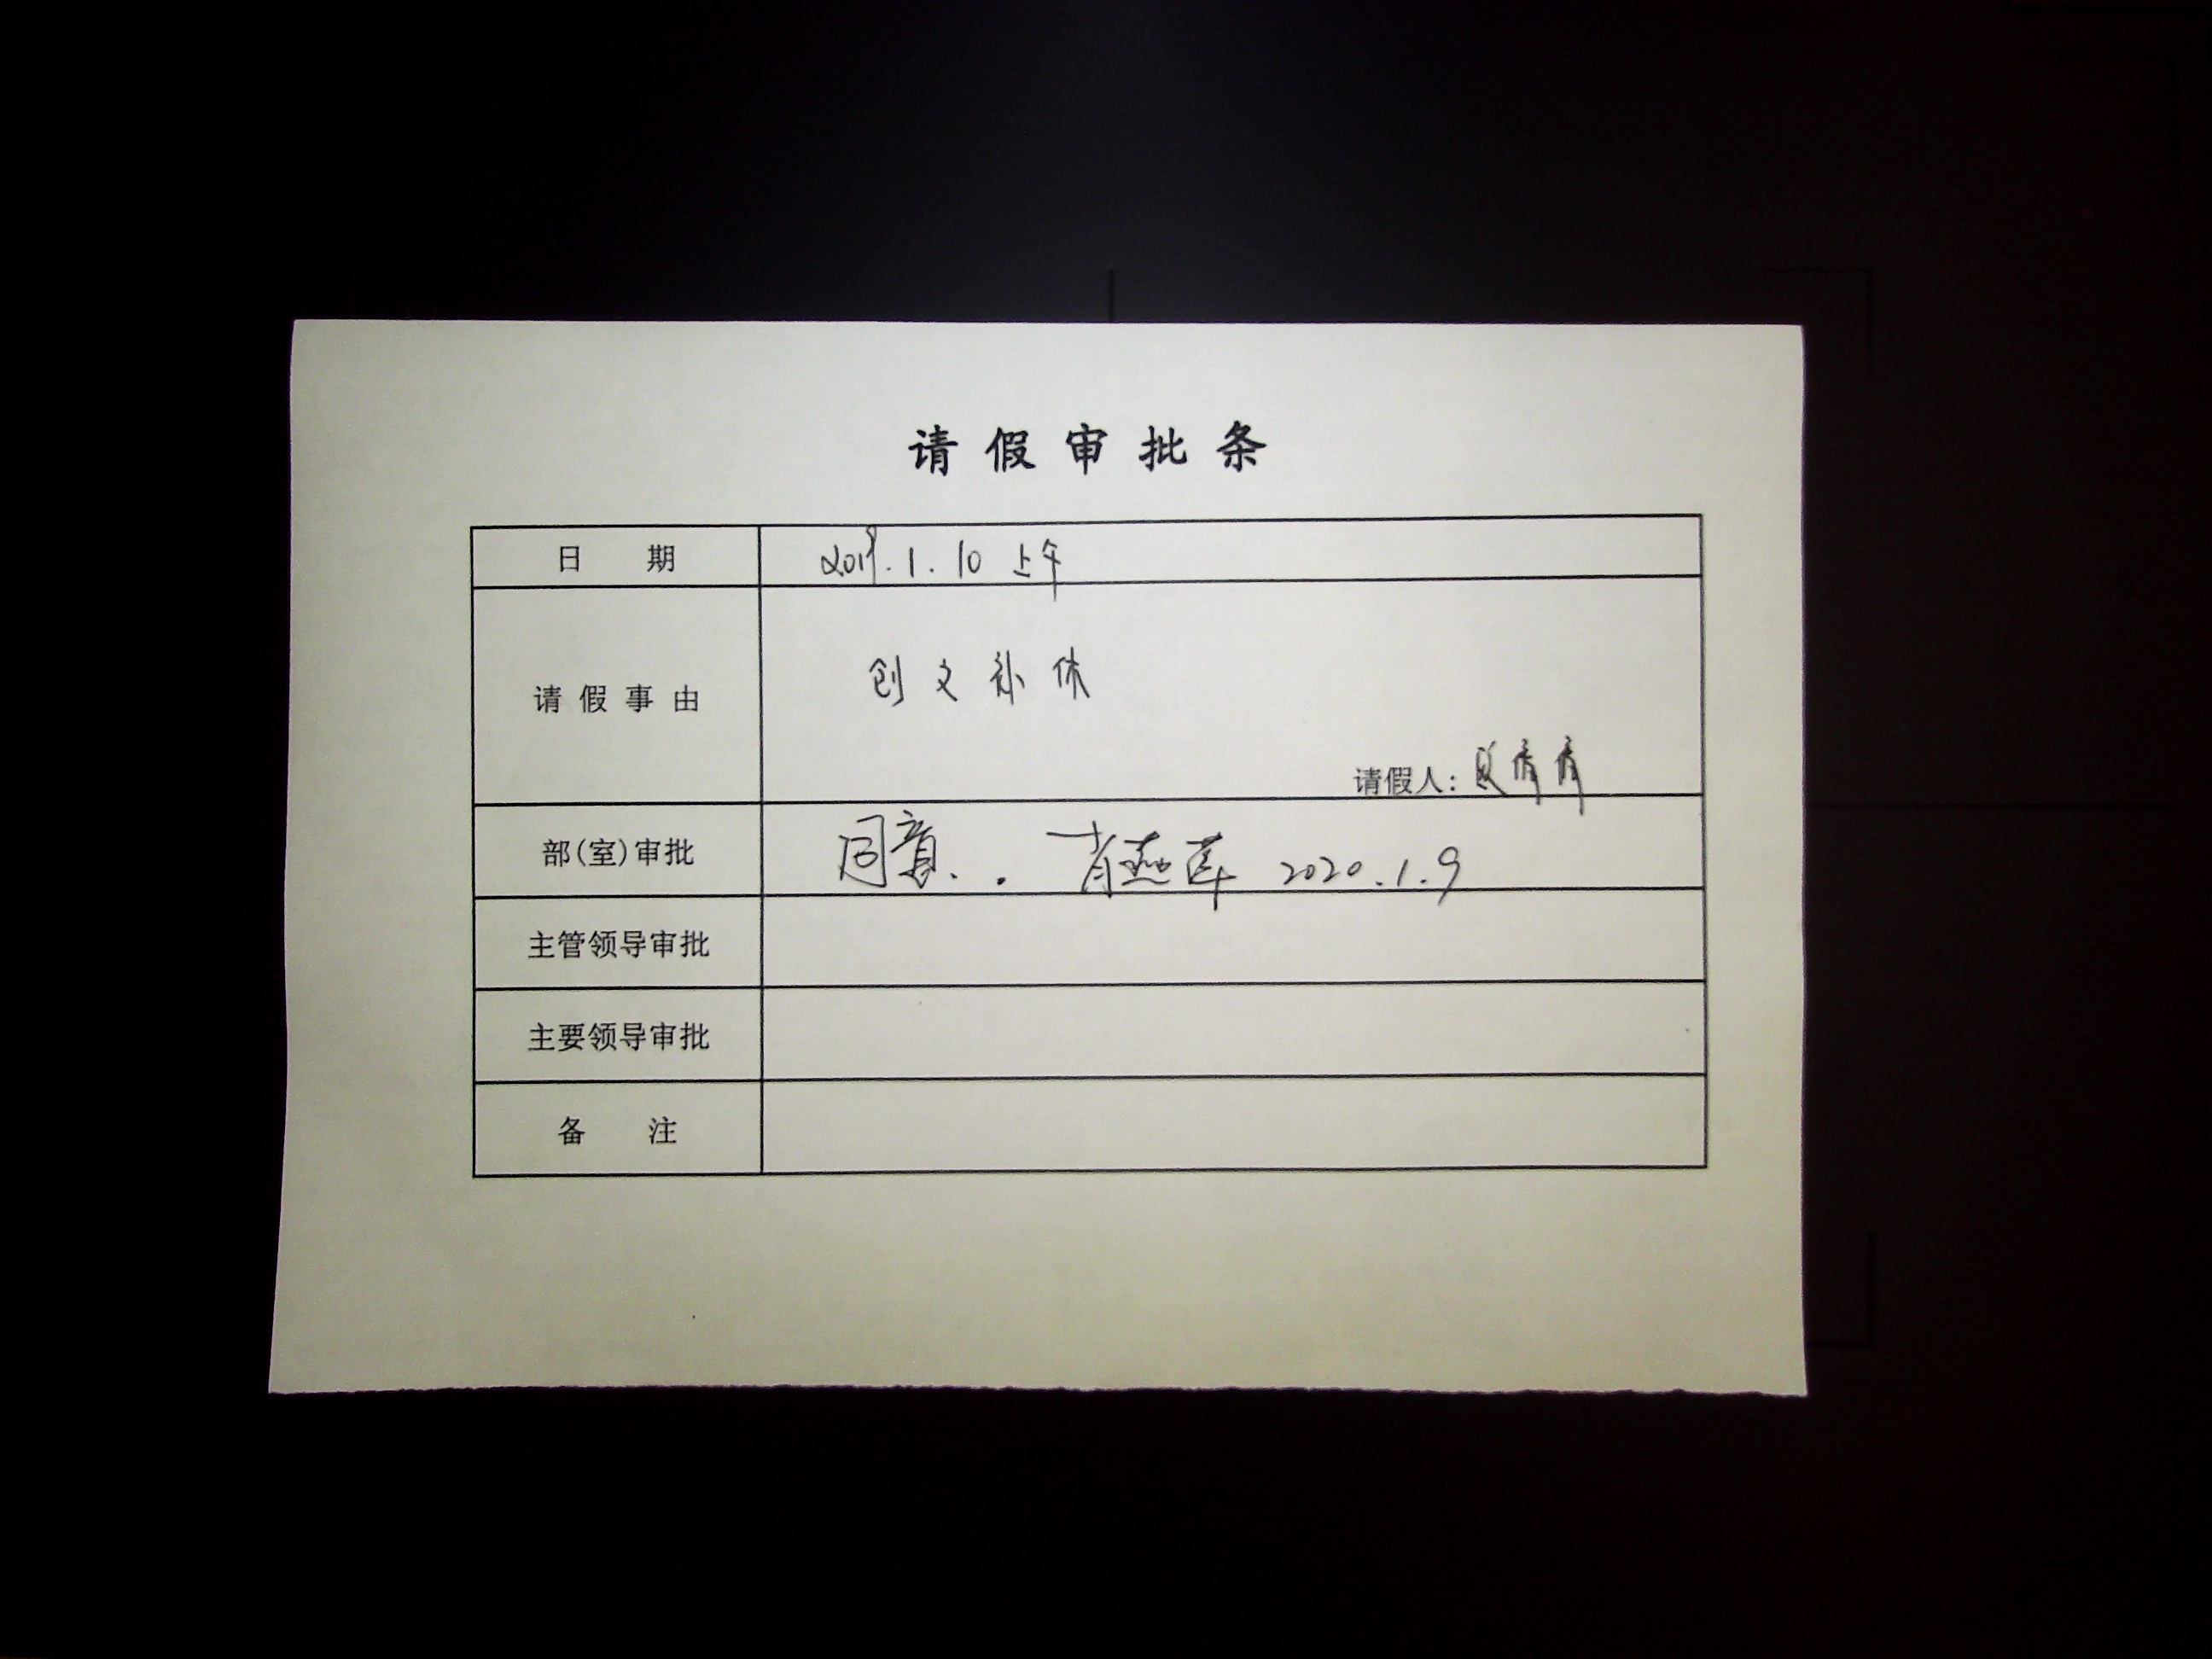 请假审批条
日 期 2019.1.10 上午
请假事由 创文补休
请假人：段倩倩
部(室)审批 同意. . 肖燕萍 2020.1.9
主管领导审批
主要领导审批
备 注